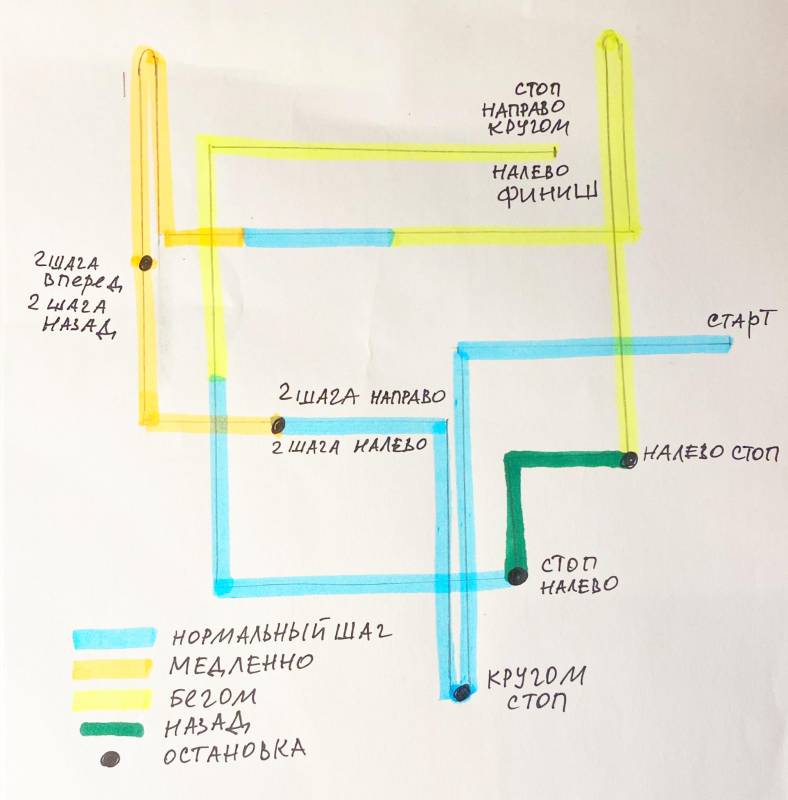 СТОП
НАПРАВО
КРУГОМ
НАЛЕВО
ФИНИШ
2 ШАГА
ВПЕРЕД
2 ШАГА
НАЗАД
СТАРТ
2 ШАГА НАПРАВО
2 ШАГА НАЛЕВО
НАЛЕВО СТОП
СТОП
НАЛЕВО
КРУГОМ
СТОП
НОРМАЛЬНЫЙ ШАГ
МЕДЛЕННО
БЕГОМ
НАЗАД
ОСТАНОВКА